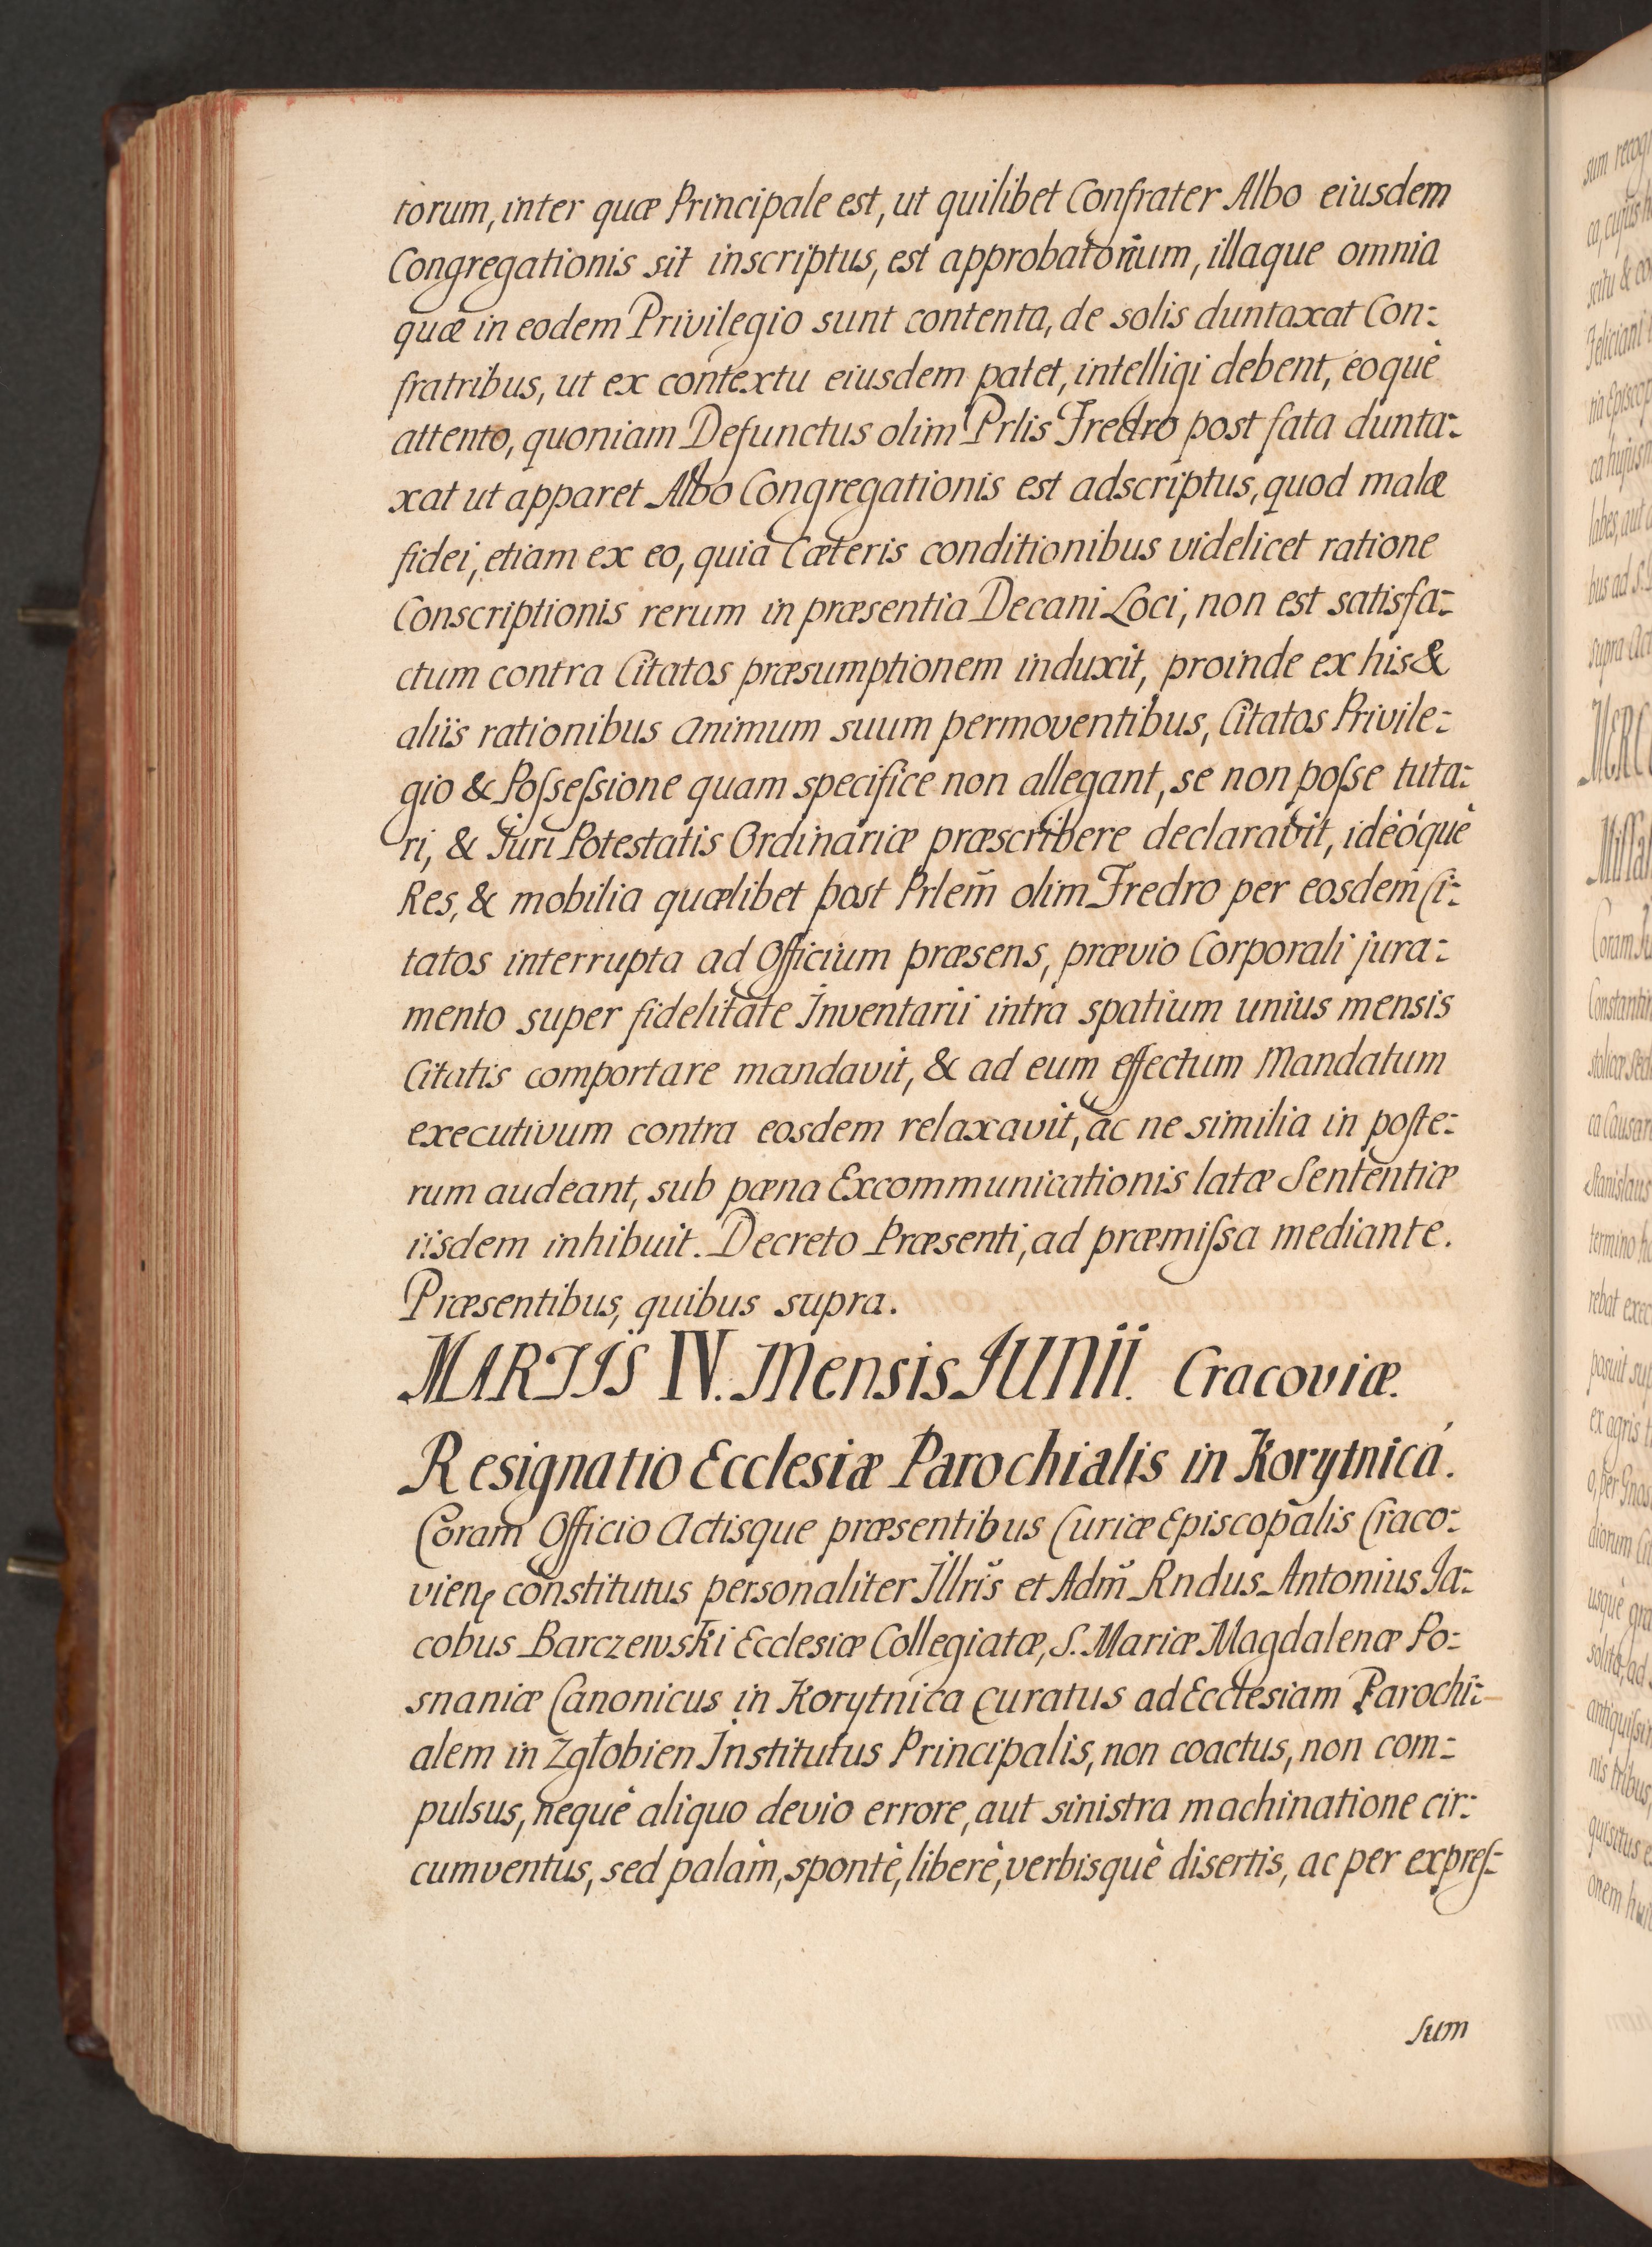 torum, inter quæ Principale est, ut quilibet Confrater Albo eiusdem
Congregationis sit inscriptus, est approbatorium, illaque omnia
quæ in eodem Privilegio sunt contenta, de solis duntaxat Con:
fratribus, ut ex contextu eiusdem patet, intelligi debent, eoquè
attento, quoniam Defunctus olim Prlis Fredro post fata dunta:
xat ut apparet Albo Congregationis est adscriptus, quod malæ
fidei, etiam ex eo, quia Cæteris conditionibus videlicet ratione
Conscriptionis rerum in præsentia Decani Loci, non est satisfa:
ctum contra Citatos præsumptionem induxit, proinde ex his &
aliis rationibus animum suum permoventibus, Citatos Privile:
gio & Poſseſsione quam specifice non allegant, se non poſse tuta:
ri, & Juri Potestatis Ordinariæ præscribere declaravit, idèóquè
Res, & mobilia quælibet post Prlem̃ olim Fredro per eosdem Ci:
tatos interrupta ad Officium præsens, prævio Corporali jura:
mento super fidelitate Inventarii intra spatium unius mensis
Citatis comportare mandavit, & ad eum effectum Mandatum
executivum contra eosdem relaxavit, ac ne similia in poſte:
rum audeant, sub pæna Excommunicationis latæ Sententiæ
iisdem inhibuit. Decreto Præsenti, ad præmiſsa mediante.
Præsentibus, quibus supra.
MARTIS IV. Mensis JUNII. Cracoviæ.
Resignatio Ecclesiæ Parochialis in Korytnicá.
Coram Officio Actisque præsentibus Curiæ Episcopalis Craco:
vien̨ constitutus personaliter Illris̃ et Adm̃ Rndus Antonius Ja:
cobus Barczewski Ecclesiæ Collegiatæ, S. Mariæ Magdalenæ Po:
snaniæ Canonicus in Korytnica Curatus ad Ecclesiam Parochi:
alem in Zgłobien Institutus Principalis, non coactus, non com:
pulsus, nequè aliquo devio errore, aut sinistra machinatione cir:
cumventus, sed palàm, spontè, liberè, verbisquè disertis, ac per expreſ:
sum